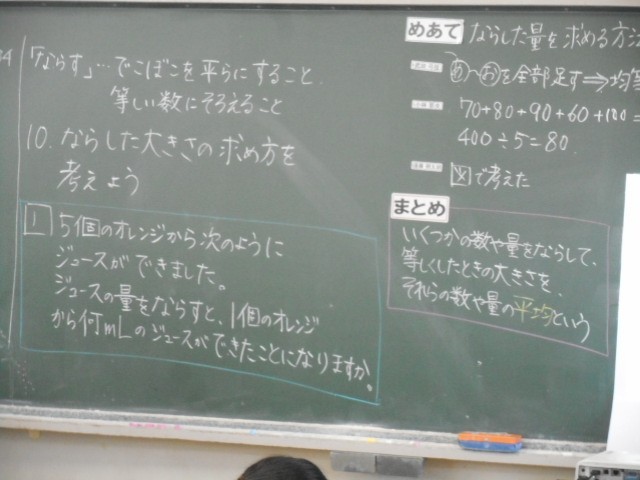 「ならす」…でこぼこを平らにすること.
等しい数にそろえること
10. ならした大きさの求め方を
考えよう
1 5個のオレンジから次のように
ジュースができました。
ジュースの量をならすと、1個のオレンジ
から何mLのジュースができたことになりますか。
めあて ならした量を求める方法
あ〜おを全部足す⇒均等
70+80+90+60+100=
400÷5=80
図で考えた
まとめ
いくつかの数や量をならして、
等しくしたときの大きさを、
それらの数や量の平均という